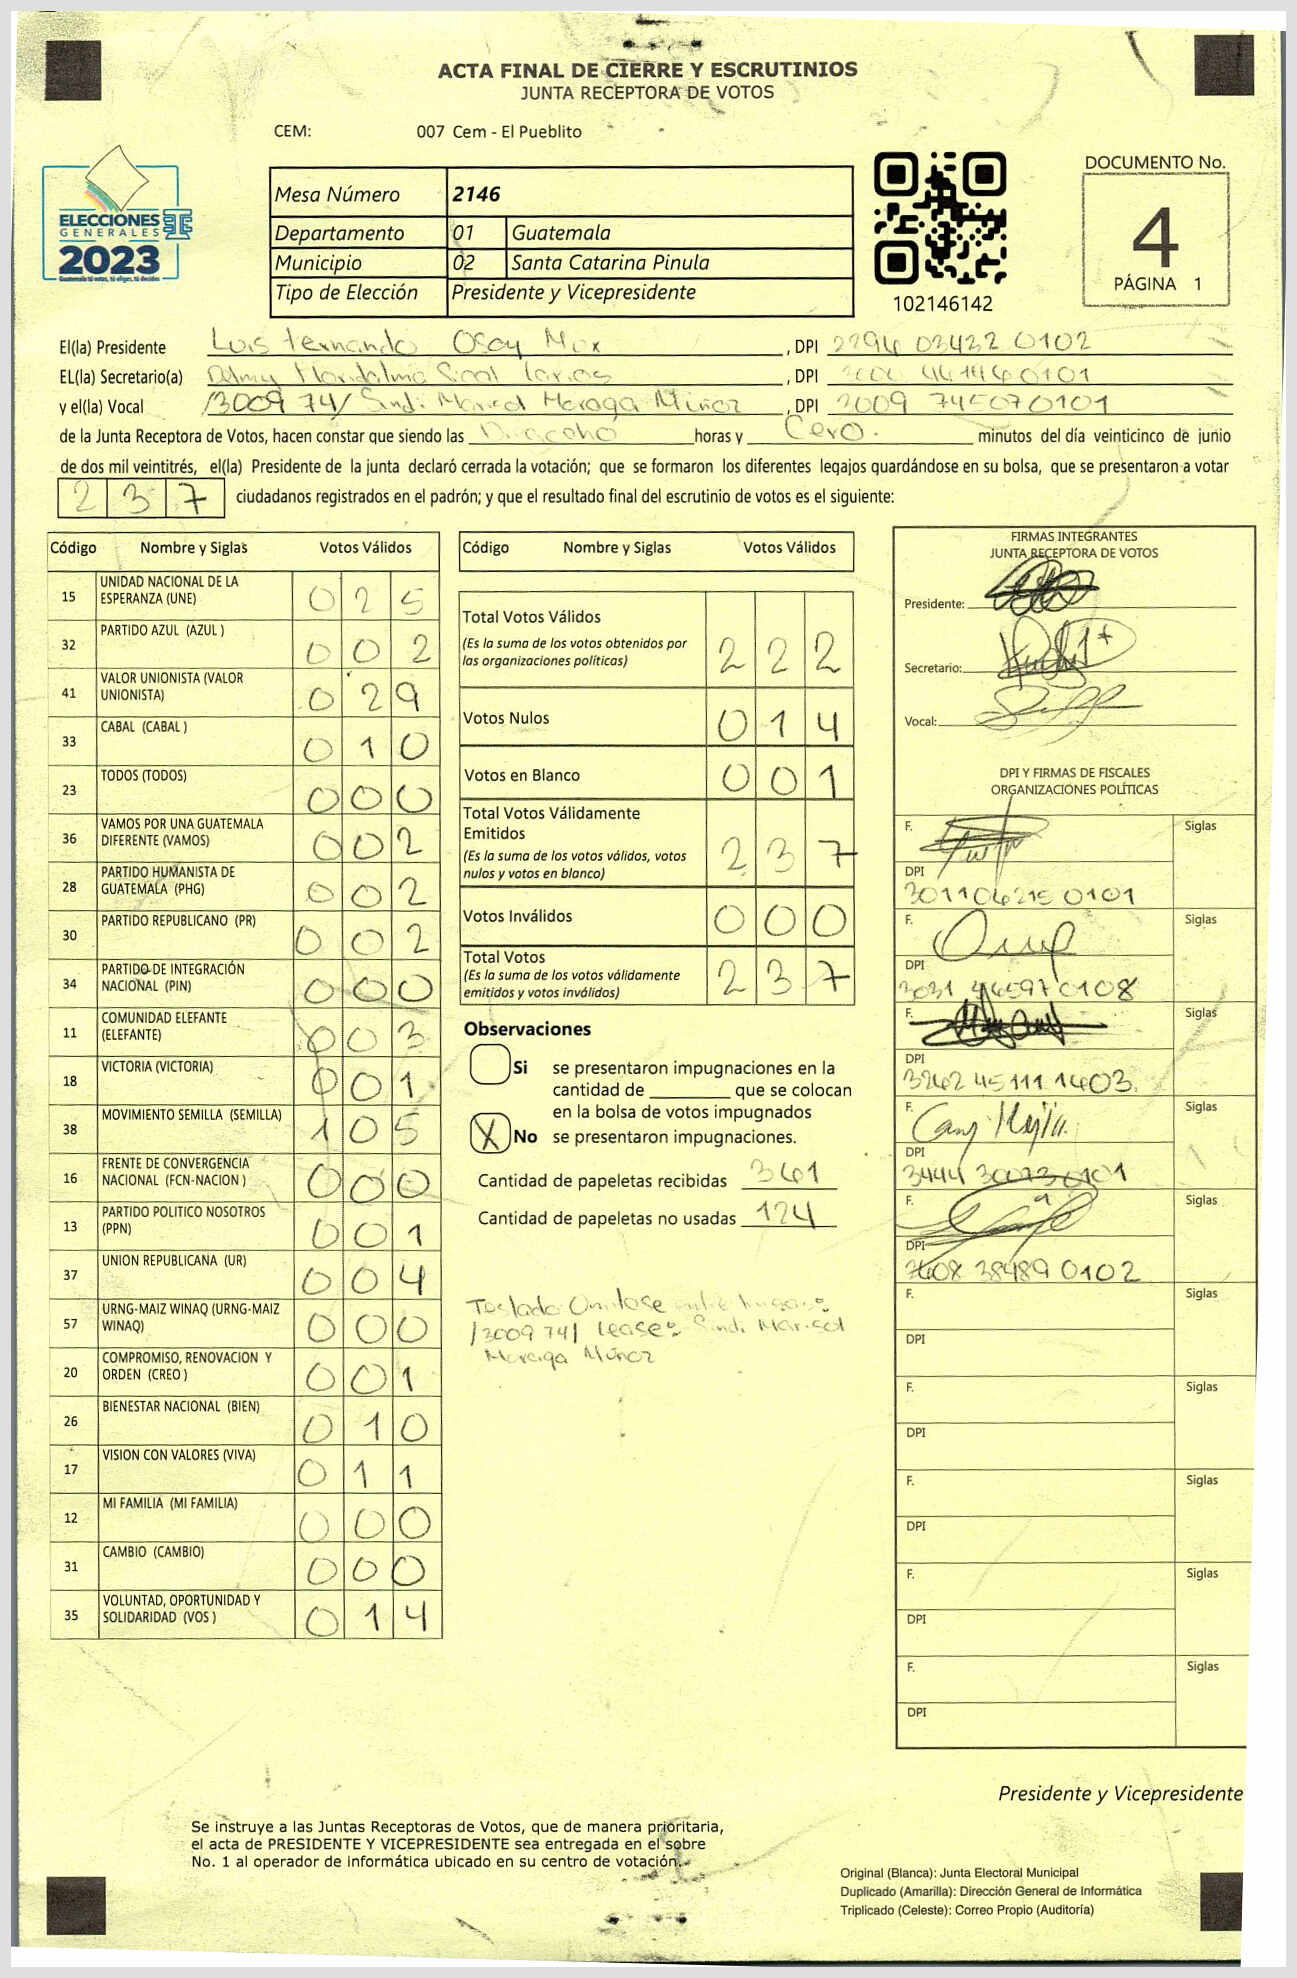 ACTA FINAL DE CIERRE Y ESCRUTINIOS
JUNTA RECEPTORA DE VOTOS
CEM: 007 Cem - El Pueblito
ELECCIONES
GENERALES
2023
Mesa Número 2146
Departamento 01 Guatemala
Municipio 02 Santa Catarina Pinula
Tipo de Elección Presidente y Vicepresidente
102146142
DOCUMENTO No.
4
PÁGINA 1
El(la) Presidente Luis Fernando Osoy Mux, DPI 2294 03422 0102
EL(la) Secretario(a) , DPI 0101
y el(la) Vocal /3009 74/ Sindi Marisol Moraga Muñoz, DPI 3009 74507 0101
de la Junta Receptora de Votos, hacen constar que siendo las horas y Cero. minutos del día veinticinco de junio
de dos mil veintitrés, el(la) Presidente de la junta declaró cerrada la votación; que se formaron los diferentes legajos quardándose en su bolsa, que se presentaron a votar
2 3 7 ciudadanos registrados en el padrón; y que el resultado final del escrutinio de votos es el siguiente:
Código Nombre y Siglas Votos Válidos
15 UNIDAD NACIONAL DE LA ESPERANZA (UNE) 0 2 5
32 PARTIDO AZUL (AZUL ) 0 0 2
41 VALOR UNIONISTA (VALOR UNIONISTA) 0 2 9
33 CABAL (CABAL ) 0 1 0
23 TODOS (TODOS) 0 0 0
36 VAMOS POR UNA GUATEMALA DIFERENTE (VAMOS) 0 0 2
28 PARTIDO HUMANISTA DE GUATEMALA (PHG) 0 0 2
30 PARTIDO REPUBLICANO (PR) 0 0 2
34 PARTIDO DE INTEGRACIÓN NACIONAL (PIN) 0 0 0
11 COMUNIDAD ELEFANTE (ELEFANTE) 0 0 3
18 VICTORIA (VICTORIA) 0 0 1
38 MOVIMIENTO SEMILLA (SEMILLA) 1 0 5
16 FRENTE DE CONVERGENCIA NACIONAL (FCN-NACION ) 0 0 0
13 PARTIDO POLITICO NOSOTROS (PPN) 0 0 1
37 UNION REPUBLICANA (UR) 0 0 4
57 URNG-MAIZ WINAQ (URNG-MAIZ WINAQ) 0 0 0
20 COMPROMISO, RENOVACION Y ORDEN (CREO ) 0 0 1
26 BIENESTAR NACIONAL (BIEN) 0 1 0
17 VISION CON VALORES (VIVA) 0 1 1
12 MI FAMILIA (MI FAMILIA) 0 0 0
31 CAMBIO (CAMBIO) 0 0 0
35 VOLUNTAD, OPORTUNIDAD Y SOLIDARIDAD (VOS ) 0 1 4
Código Nombre y Siglas Votos Válidos
Total Votos Válidos
(Es la suma de los votos obtenidos por
las organizaciones políticas) 2 2 2
Votos Nulos 0 1 4
Votos en Blanco 0 0 1
Total Votos Válidamente
Emitidos
(Es la suma de los votos válidos, votos
nulos y votos en blanco) 2 3 7
Votos Inválidos 0 0 0
Total Votos
(Es la suma de los votos válidamente
emitidos y votos inválidos) 2 3 7
Observaciones
Si se presentaron impugnaciones en la
cantidad de ________ que se colocan
en la bolsa de votos impugnados
X No se presentaron impugnaciones.
Cantidad de papeletas recibidas 361
Cantidad de papeletas no usadas 124
Testado Omitase entre lineas:
/3009 74/ Lease: Sindi Marisol
Moraga Muñoz
FIRMAS INTEGRANTES
JUNTA RECEPTORA DE VOTOS
Presidente:
Secretario:
Vocal:
DPI Y FIRMAS DE FISCALES
ORGANIZACIONES POLÍTICAS
F. Siglas
DPI
301106215 0101
F. Siglas
DPI
3031 46597 0108
F. Siglas
DPI
3262 45111 1403
F. Siglas
DPI
3444 30073 0101
F. Siglas
DPI
38489 0102
F. Siglas
DPI
F. Siglas
DPI
F. Siglas
DPI
F. Siglas
DPI
F. Siglas
DPI
Presidente y Vicepresidente
Se instruye a las Juntas Receptoras de Votos, que de manera prioritaria,
el acta de PRESIDENTE Y VICEPRESIDENTE sea entregada en el sobre
No. 1 al operador de informática ubicado en su centro de votación.
Original (Blanca): Junta Electoral Municipal
Duplicado (Amarilla): Dirección General de Informática
Triplicado (Celeste): Correo Propio (Auditoría)